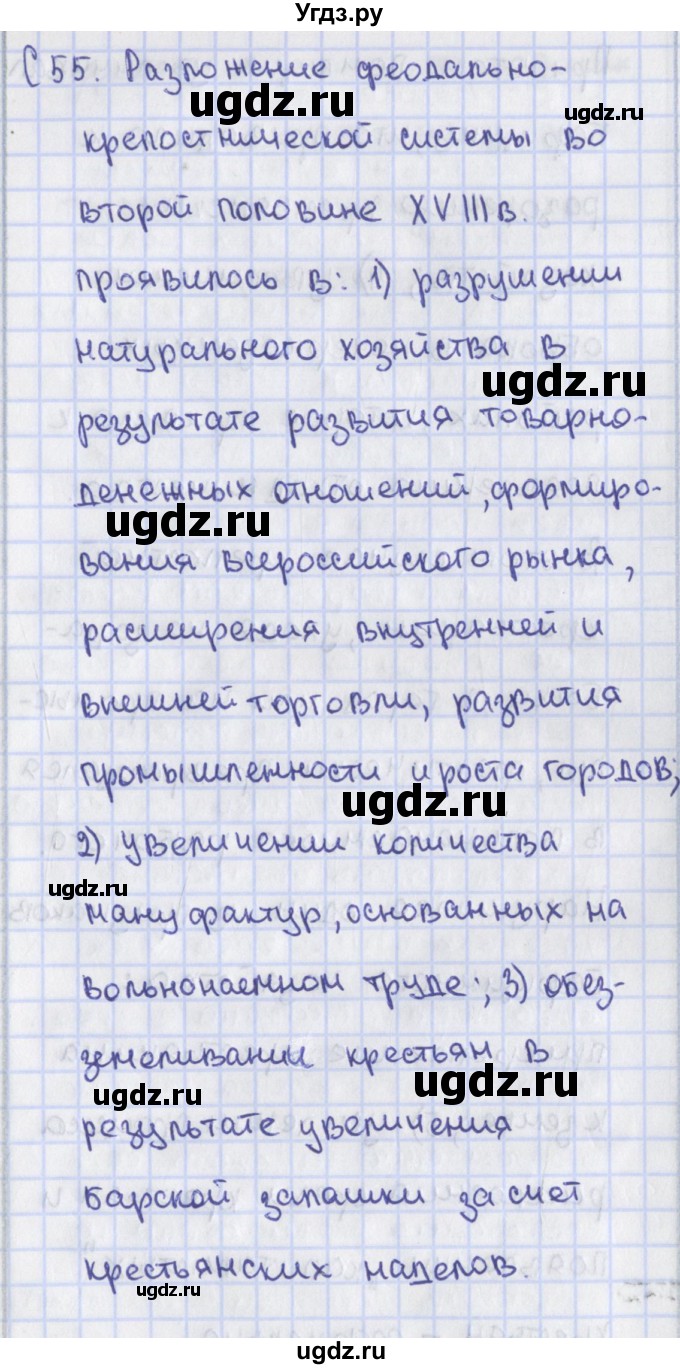 Угдз.ру
С 55. Разложение феодально-
ugdz.ru
ugdz.ru
крепостнической системы во
второй половине XVIII в.
проявилось в: 1) разрушении
натурального хозяйства в
ugdz.ru
результате развития товарно-
денежных отношений, формиро-
ugdz.ru
вания всероссийского рынка,
расширения внутренней и
внешней торговли, развития
промышленности и роста городов;
ugdz.ru
2) увеличении количества
ugdz.ru
мануфактур, основанных на
вольнонаемном труде; 3) обез-
земеливании крестьян в
ugdz.ru
ugdz.ru
результате увеличения
барской запашки за счет
крестьянских наделов.
ugdz.ru
ugdz.ru